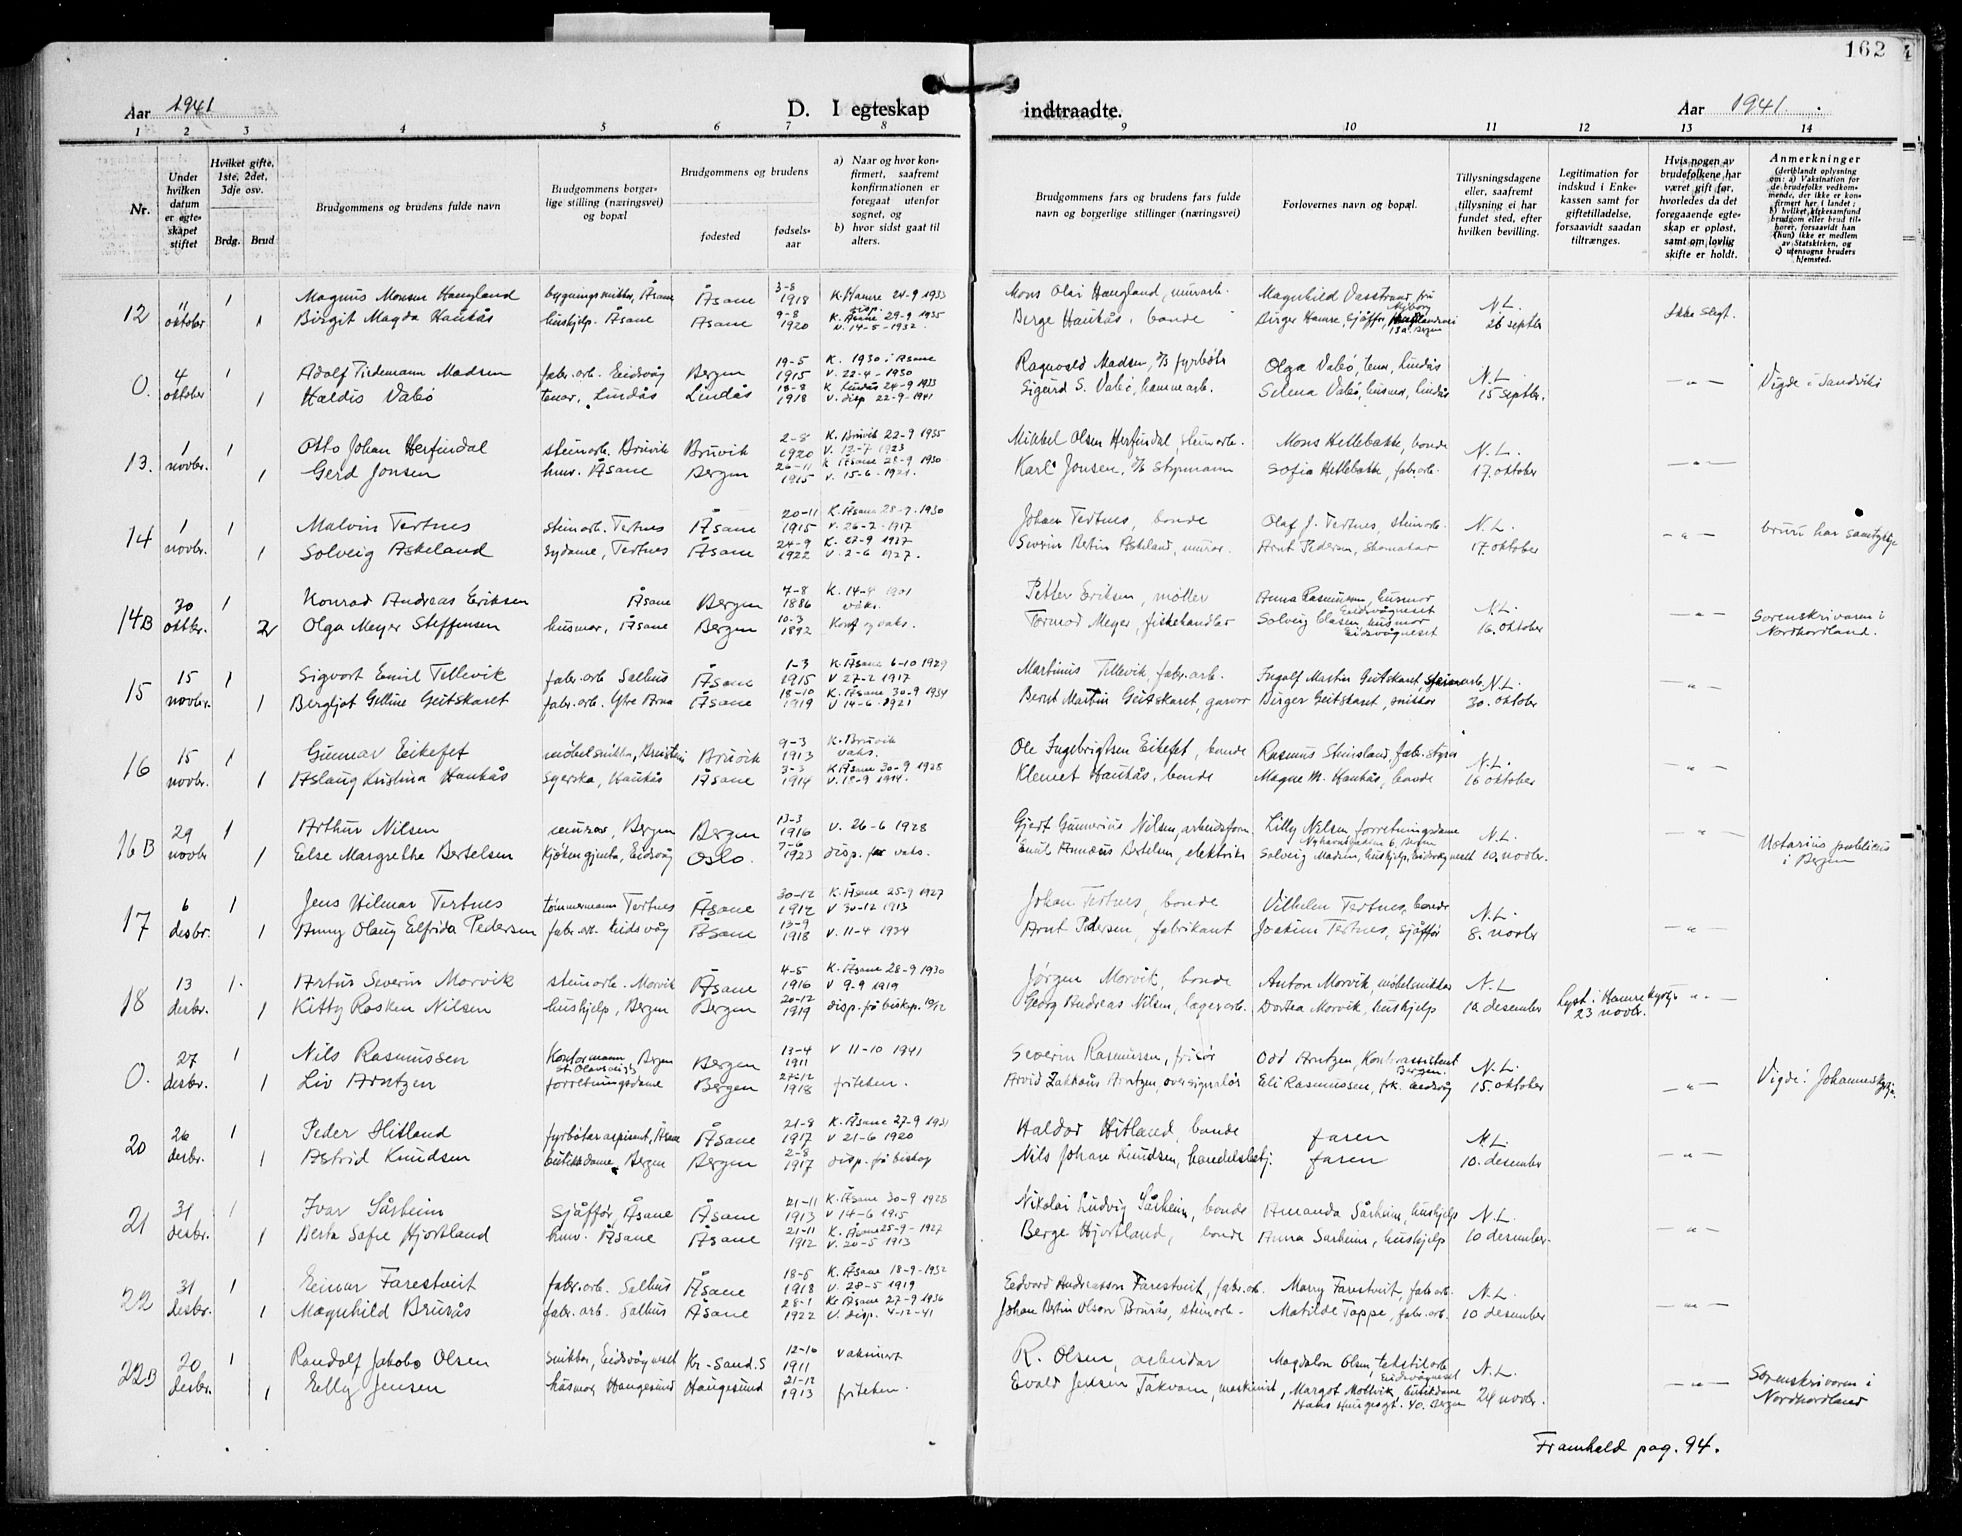 162
Aar 1941
D. I egteskap
indtraadte.
Aar 1941
1 2 3 4 5 6 7 8 9 10 11 12 13 14
Nr.
Under hvilken datum er egteskapet stiftet
Hvilket gifte, 1ste, 2det, 3dje osv.
Brdg. Brud
Brudgommens og brudens fulde navn
Brudgommens borgerlige stilling (næringsvei) og bopæl
Brudgommens og brudens
fødested
fødselsaar
a) Naar og hvor konfirmert, saafremt konfirmationen er foregaat utenfor sognet, og
b) hvor sidst gaat til alters.
Brudgommens fars og brudens fars fulde navn og borgerlige stillinger (næringsvei)
Forlovernes navn og bopæl.
Tillysningsdagene eller, saafremt tillysning ei har fundet sted, efter hvilken bevilling.
Legitimation for indskud i Enkekassen samt for giftetilladelse, forsaavidt saadan tiltrænges.
Hvis nogen av brudefolkene har været gift før, hvorledes da det foregaaende egteskap er opløst, samt om lovlig skifte er holdt.
Anmerkninger
(deriblandt oplysning om: a) Vaksination for de brudefolks vedkommende, der ikke er konfirmert her i landet; b) hvilket kirkesamfund brudgom eller brud tilhører, forsaavidt han (hun) ikke er medlem av Statskirken, og c) utensogns bruders hjemsted.
12 11 oktober 1 Magnus Monsen Haugland bygningssnikker, Åsane Åsane 3-8 1918 K. Hamre 24-9 1933 Mons Olai Haugland, murarb. Magnhild Vasstrand, fru N.L. Ikke slegt.
1 Birgit Magda Haukås hushjelp. Åsane Åsane 9-8 1920 K. Åsane 29-9 1935 V. 14-5-1932. Berge Haukås, bonde Birger Hamre, sjåffør 26 septbr
0. 4 oktober 1 Adolf Tidemann Madsen fabr.arb. Eidsvåg Bergen 19-5 1915 K. 1930 i Åsane V. 22-4-1930 Ragnvald Madsen, fyrbøtr Olga Vabø, Lindås N.L. —„— Vigde i Sandviks
1 Haldis Vabø Lindås Lindås 18-8 1918 K. Lindås 24-9 1933 V. disp 22-9-1941 Sigurd S. Vabø, Selma Vabø, husmor, Lindås 15 septbr.
13. 1 novbr. 1 Otto Johan Herfindal steinarb. Bruvik Bruvik 2-8 1920 K. Bruvik 22-9 1935 V. 12-7 1923 Mikkel Olsen Herfindal, steinarb. Mons Hellebakke, bonde N.L. —„—
1 Gerd Jonsen hmv. Åsane Bergen 26-11 1915 K Åsane 28-9 1930 V. 15-6-1921. Karl Jonsen, styrmann Sofia Hellebakke, fabr.arb. 17. oktober
14 1 novbr. 1 Malvin Tertnes steinarb. Tertnes Åsane 20-11 1915 K. Åsane 28-9-1930 V. 26-2-1917 Johan Tertnes, bonde Olaf J. Tertnes, steinarb. N.L. —„— bruri har samtykje
1 Solveig Askeland sydame, Tertnes Åsane 24-9 1922 K. 27-9 1937 V. 2-6 1927. Severin Bertin Askeland, murar. Arnt Pedersen, skomakar 17. oktober
14B 30 oktbr. 1 Konrad Andreas Eriksen Åsane Bergen 7-8 1886 K. 14-4 1901 vaks. Petter Eriksen, møller Anna Rasmussen, husmor Eidsvågneset N.L. —„— Sorenskrivaren i Nordhordland.
2 Olga Meyer Steffensen husmor, Åsane Bergen 10-3 1892 Konf og vaks. Tormod Meyer, fiskehandler Solveig Olasen, husmor Eidsvågneset 16. oktober
15 15 novbr. 1 Sigvart Emil Tellevik fabr.arb Salhus Åsane 1-3 1915 K. Åsane 6-10 1929 V 27-2 1917 Martinus Tellevik, fabr.arb. Ingolf Martin Geitskaret, steinarb N.L. —„—
1 Bergljot Gelline Geitskaret fabr.arb. Ytre Arna Åsane 18-10 1919 K. Åsane 30-9 1934 V 14-6-1921 Bernt Martin Geitskaret, garver Birger Geitskaret, snikkar 30. oktober
16 15 novbr. 1 Gunnar Eikefet møbelsnikkar, Bruvik 9-3 1913 K. Bruvik vaks. Ole Ingebrigtsen Eikefet, bonde Rasmus Steinsland, fabr.styrer N.L. —„—
1 Aslaug Kristina Haukås Syerska, Haukås Åsane 3-3 1914 K Åsane 30-9 1928 V. 18-9 1914. Klemet Haukås, bonde Magne M. Haukås, bonde 16 oktober
16B 29 novbr 1 Arthur Nilsen murar, Bergen Bergen 13-3 1916 V. 26-6 1928 Gjert Gunnerius Nilsen, arbeidsform. Lilly Nilsen, forretningsdame 6, Bergen N.L. —„— Notarius publicus i Bergen
1 Else Margrethe Bertelsen Kjøkengjenta, Eidsvåg Oslo. 7-6 1923 disp. for vaks. Emil Annæus Bertelsen, elektrik. Solveig Madsen, hushjelp, Eidsvågneset 10. novbr.
17 6 desbr. 1 Jens Hilmar Tertnes tømmermann Tertnes Åsane 30-12 1912 K. Åsane 25-9 1927 V 30-12 1913 Johan Tertnes, bonde Vilhelm Tertnes, bonde N.L. —„—
1 Anny Olaug Elfrida Pedersen fabr.arb. Eidsvåg Åsane 13-9 1918 V. 11-4 1934 Arnt Pedersen, fabrikant Joakim Tertnes, sjåffør 8. novbr
18 13 desbr. 1. Artur Severin Morvik steinarb. Morvik Åsane 4-5 1916 K. Åsane 28-9 1930 V 9-9 1919 Jørgen Morvik, bonde Anton Morvik, møbelsnikkar N.L. Lyst i Hamre kyrkje 23 novbr. —„—
1 Kitty Rosken Nilsen hushjelp, Bergen Bergen 20-12 1919 disp. frå biskop. 10/12 Georg Andreas Nilsen, lagerarb. Dortea Morvik, hushjelp 10 desember
0. 27 desbr. 1 Nils Rasmussen Kontormann, Bergen St. Olavsvei Bergen 13-4 1911 V 11-10 1941 Severin Rasmussen, frisør Odd Arntzen, Kontorassistent Bergen. N.L. —„— Vigde i Johanneskyrkja.
1 Liv Arntzen forretningsdame Bergen 27-12 1918 friteken. Arvid Zakkaus Arntzen, Eli Rasmussen, frk. Eidsvåg 15. oktober
20 26 desbr. 1 Peder Hitland fyrbøtaraspirant, Åsane Åsane 21-8 1917 K. Åsane 27-9 1931 V 21-6 1920 Haldor Hitland, bonde faren N.L. —„—
1 Astrid Knudsen butikkdame, Bergen Bergen 2-8 1917 disp. frå biskop Nils Johan Knudsen, handelsbetj. faren 10. desember
21 31 desbr. 1 Ivar Sårheim Sjåffør, Åsane Åsane 21-11 1913 K. Åsane 30-9 1928 V 14-6 1915 Nikolai Ludvig Sårheim, bonde Amanda Sårheim, hushjelp N.L. —„—
1 Berta Sofie Hjortland hmv. Åsane Åsane 21-11 1912 K. Åsane 25-9-1927 V. 20-5 1913 Berge Hjortland, bonde Anna Sårheim, hushjelp 10 desember.
22 31 desbr. 1 Einar Farestveit fabr.arb. Salhus Åsane 18-5 1918 K. Åsane 18-9-1932 V. 28-5 1919 Edvard Andreasson Farestveit, fabr.arb. Marry Farestveit, fabr.arb. N.L. —„—
1 Magnhild Brurås fabr.arb. Salhus Åsane 28-1 1922 K. Åsane 27-9 1936 V. disp. 4-12-41 Johan Bertin Olson Brurås, steinarb. Matilde Toppe, fabr.arb. 10 desember
22B 20 desbr. 1 Randolf Jakobs Olsen Snikkar, Eidsvågneset Kr-Sand.S 12-10 1911 vaksinert R. Olsen, arbeidar Magdalon Olsen, tekstilarb. Eidsvågneset N.L. —„— Sorenskrivaren i Nordhordland
1 Elly Jensen husmor, Haugesund Haugesund 21-12 1913 friteken. Evald Jensen Takvam, maskinist, Margot Moltvik, butikkdame 40. Bergen 24 novbr.
Framhald pag. 94.